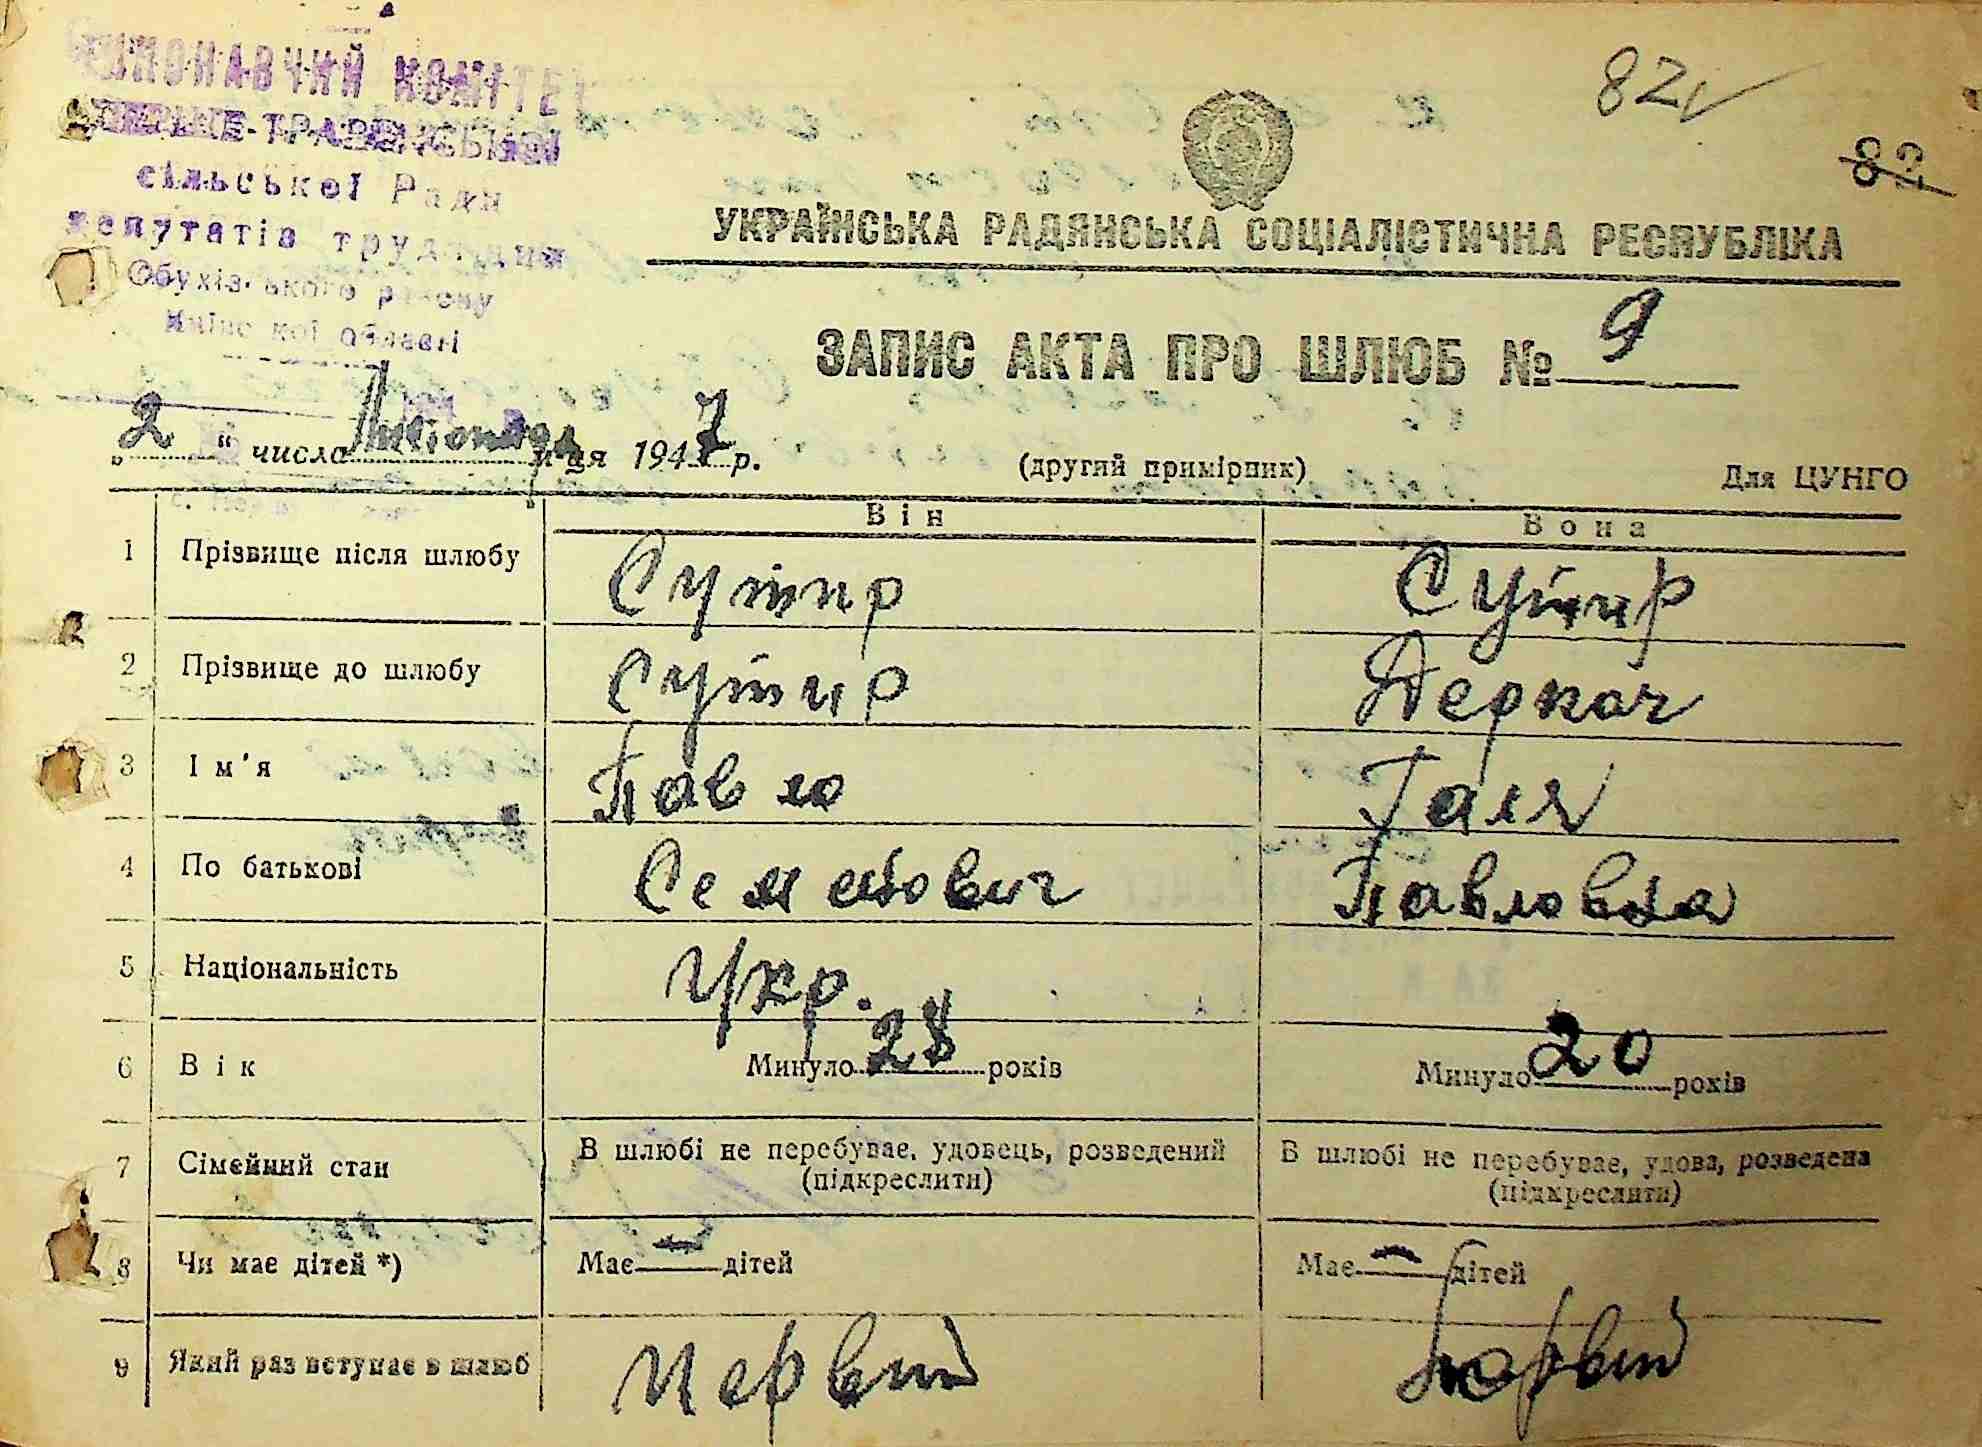 ВИКОНАВЧИЙ КОМІТЕТ
сільської Ради
депутатів трудящих
Обухівського району
Київської області
82
82
УКРАЇНСЬКА РАДЯНСЬКА СОЦІАЛІСТИЧНА РЕСПУБЛІКА
ЗАПИС АКТА ПРО ШЛЮБ № 9
„2“ числа листопада м-ця 1947 р.
(другий примірник)
Для ЦУНГО
Він Вона
1 Прізвище після шлюбу Сутир Сутир
2 Прізвище до шлюбу Сутир Деркач
3 Ім'я Павло Галя
4 По батькові Семенович Павловна
5 Національність Укр.
6 Вік Минуло 28 років Минуло 20 років
7 Сімейний стан В шлюбі не перебуває, удовець, розведений В шлюбі не перебуває, удова, розведена
(підкреслити) (підкреслити)
8 Чи має дітей *) Має — дітей Має — дітей
9 Який раз вступає в шлюб Первий Первий